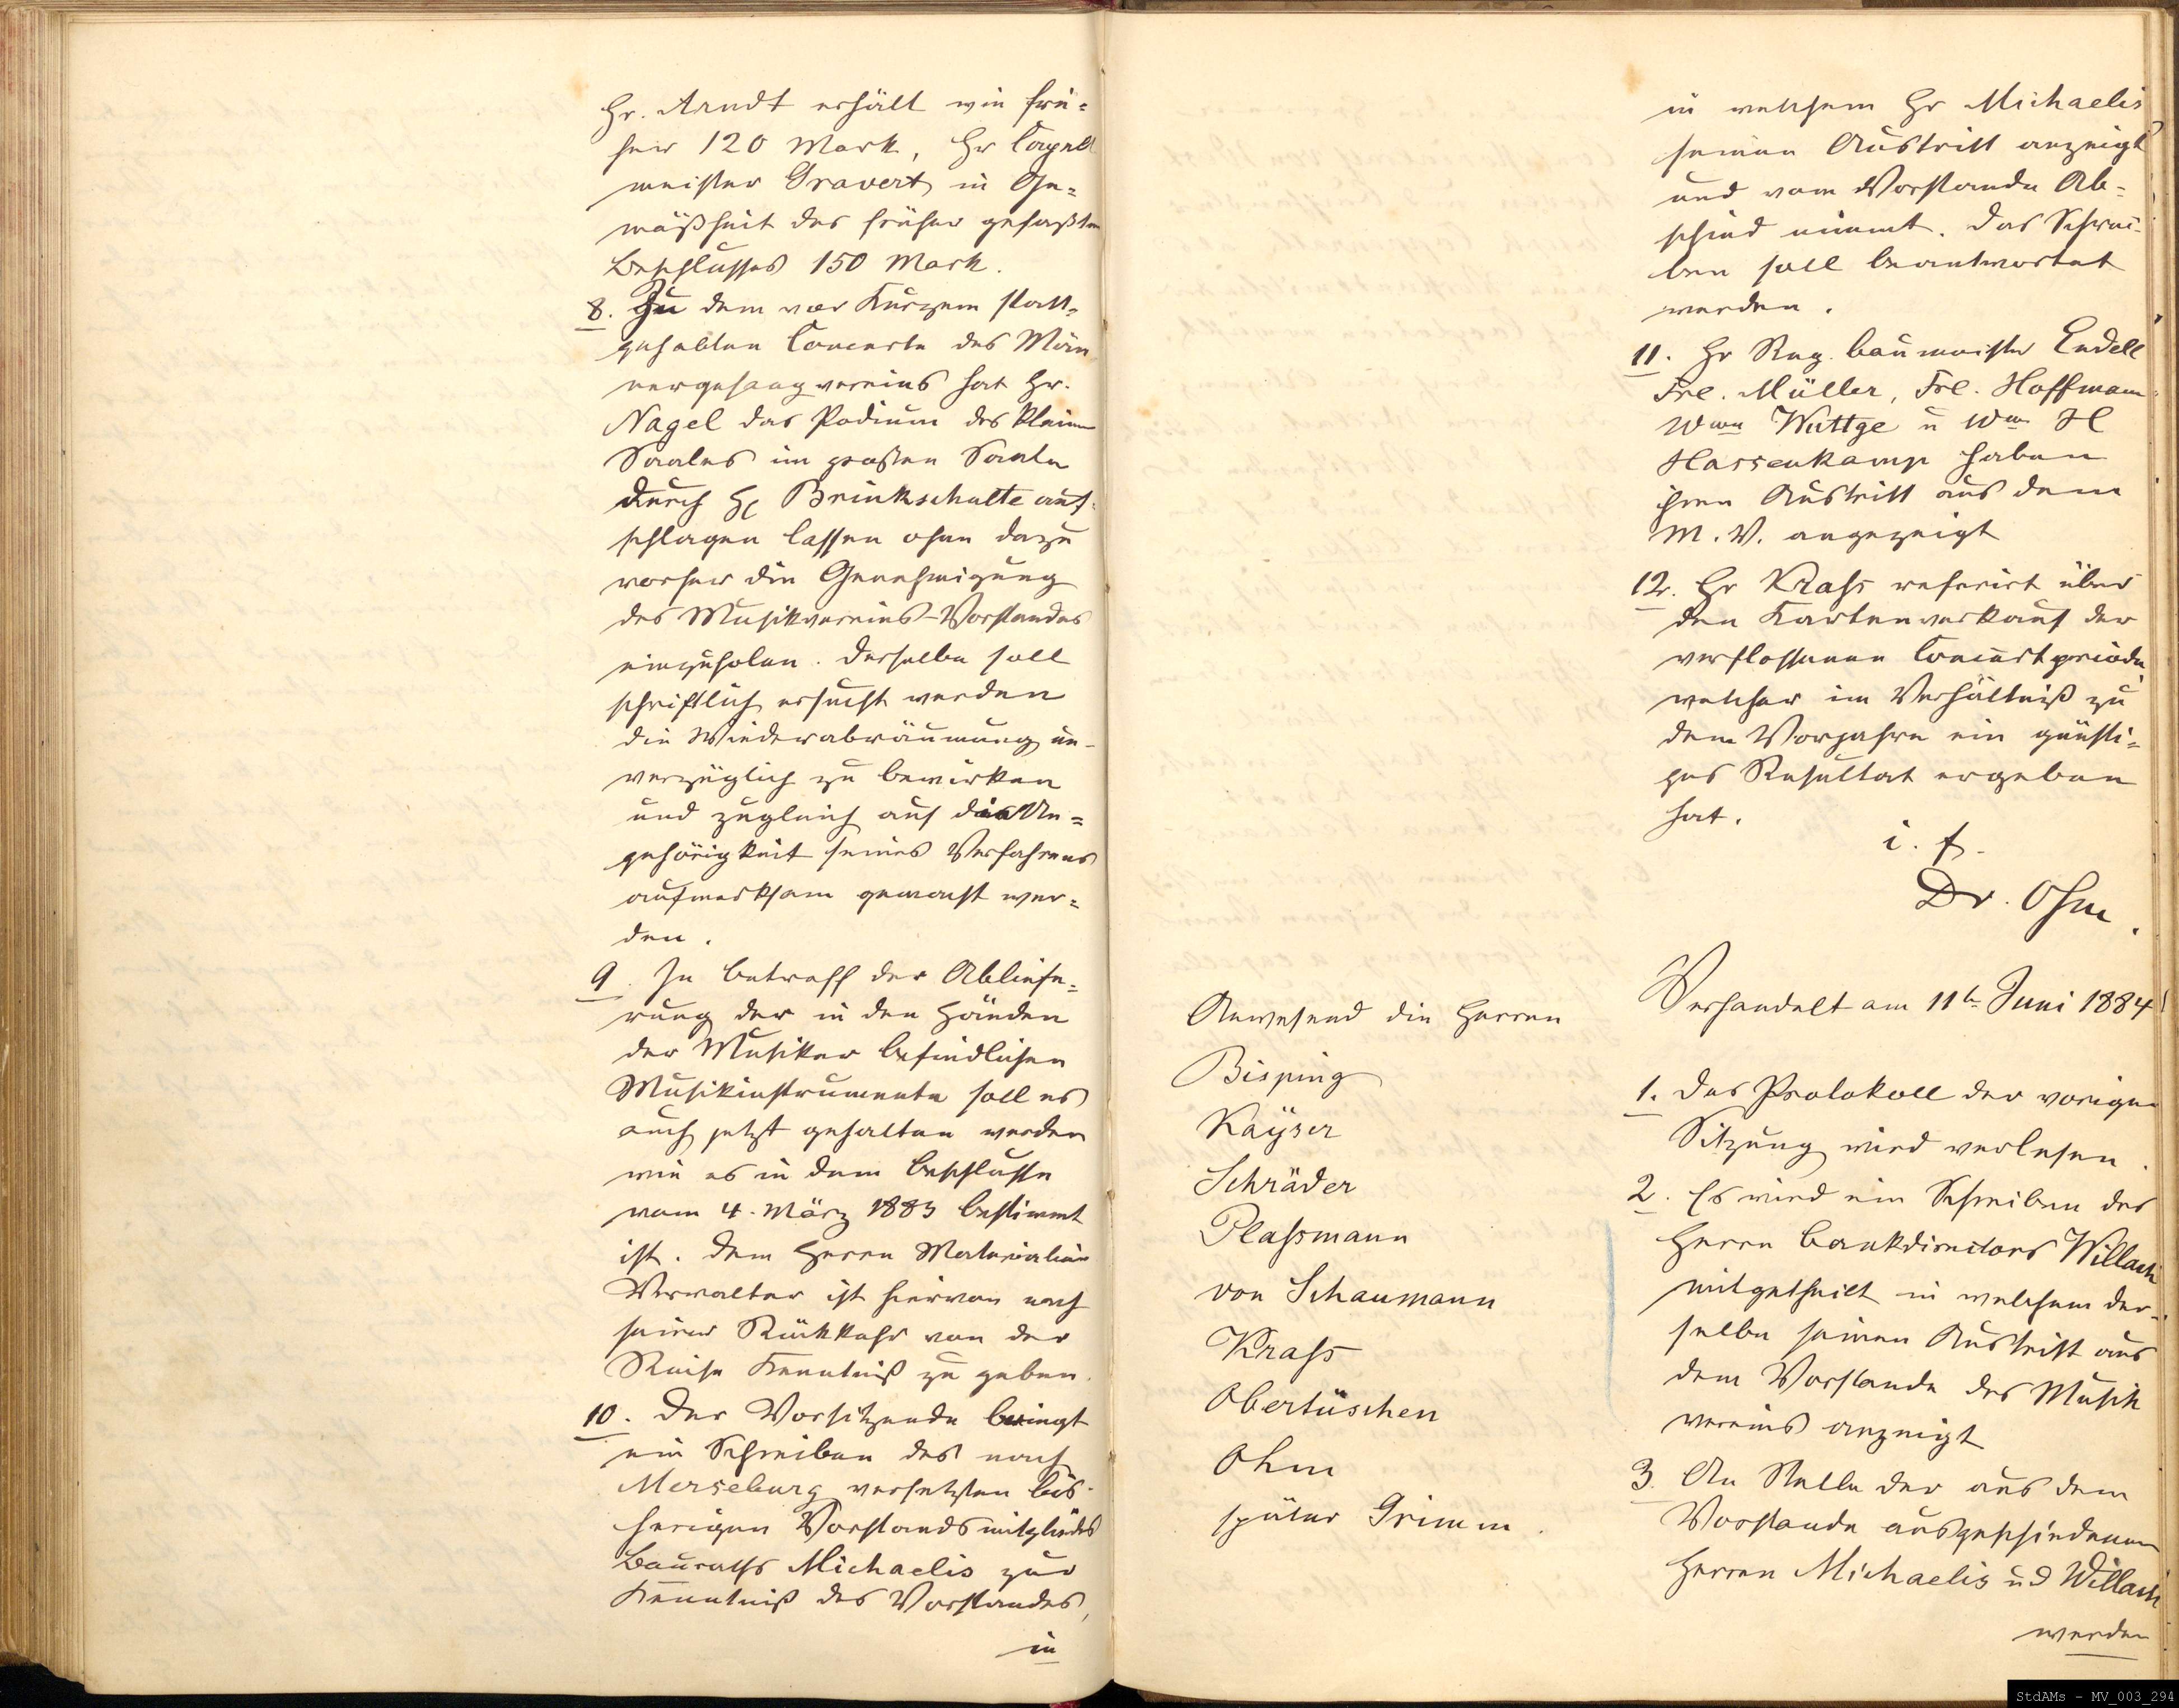 Hr. Arndt erhält wie frü=
her 120 Mark, Hr Capell
meister Gravert in Ge=
mäßheit des früher gefaßten
Beschlusses 150 Mark.
8. Zu dem vor Kurzem statt=
gehabten Concerte des Män
nergesangvereins hat Hr.
Nagel das Podium des kleinen
Saales im großen Saale
durch H. Brinkschulte auf-
schlagen lassen ohne dazu
vorher die Genehmigung
des Musikvereins-Vorstandes
einzuholen. Derselbe soll
schriftlich ersucht werden
die Wiederabräumung un-
verzüglich zu bewirken
und zugleich auf die Un=
gehörigkeit seines Verfahrens
aufmerksam gemacht wer=
den.
9. In betreff der Abliefe=
rung der in den Händen
der Musiker befindlichen
Musikinstrumente soll es
auch jetzt gehalten werden
wie es in dem Beschlusse
vom 4. März 1883 bestimmt
ist. Dem Herrn Materialien
Verwalter ist hiervon nach
seiner Rückkehr von der
Reise Kenntniß zu geben.
10. Der Vorsitzende bringt
ein Schreiben des nach
Merseburg versetzten bis-
herigen Vorstandsmitgliedes
Bauraths Michaelis zur
Kenntniß des Vorstandes,
in
in welchem Hr Michaelis
seinen Austritt anzeigt
und vom Vorstande Ab-
schied nimmt. Das Schrei-
ben soll beantwortet
werden.
11. Hr Reg. baumeister Endell
Frl. Müller, Frl. Hoffmann
Wwe Wuttge u Wwe H
Hassenkamp haben
ihren Austritt aus dem
M. V. angezeigt
12. Hr Krass referirt über
den Kartenverkauf der
verflossenen Concertperiode,
welcher im Verhältniß zu
dem Vorjahre ein günsti=
ges Resultat ergeben
hat.
i. f.
Dr. Ohm.
Verhandelt am 11t Juni 1884
Anwesend die Herren
Bisping
Kayser
Schräder
Plassmann
von Schaumann
Krass
Obertüschen
Ohm
später Grimm.
1. Das Protokoll der vorigen
Sitzung wird verlesen.
2. Es wird ein Schreiben des
Herrn Bankdirectors Willach
mitgetheilt in welchem der-
selbe seinen Austritt aus
dem Vorstande des Musik
vereins anzeigt
3. An Stelle der aus dem
Vorstande ausgeschiedenen
Herren Michaelis und Willach
werden
StdAMs - MV_003_294